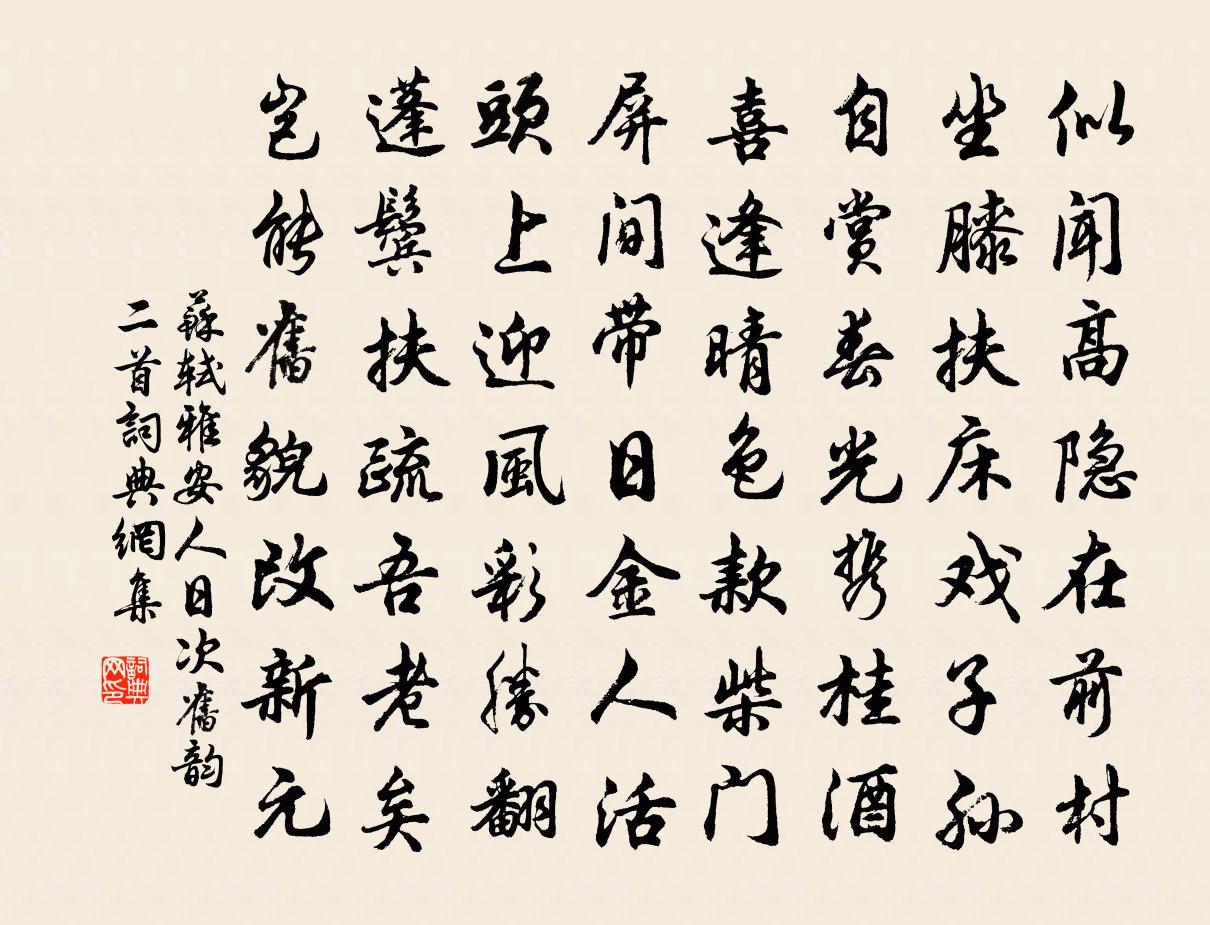 似闻高隐在前村
坐膝扶床戏子孙
自赏春光携桂酒
喜逢晴色款柴门
屏间带日金人活
頭上迎風彩勝翻
蓬鬓扶疏吾老矣
岂能舊貌改新元
蘇軾雅安人日次舊韵
二首詞典網集
詞典
网印